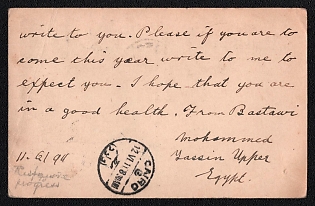 write to you. Please if you are to
come this year write to me to
expect you. I hope that you are
in a good health. From Bastawi
Mohammed
Yassin Upper
Egypt.
CAIRO